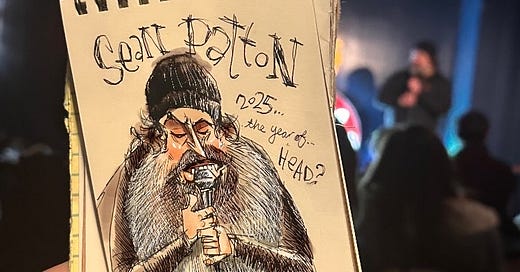 Sean Patton
2025...
the year of...
HEAD?